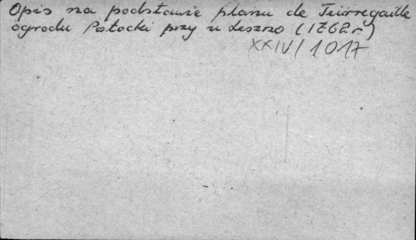 Opis na podstawie planu de Tirregaille
ogrodu Potocki przy u Leszno (1762 r)
XXIV/1017